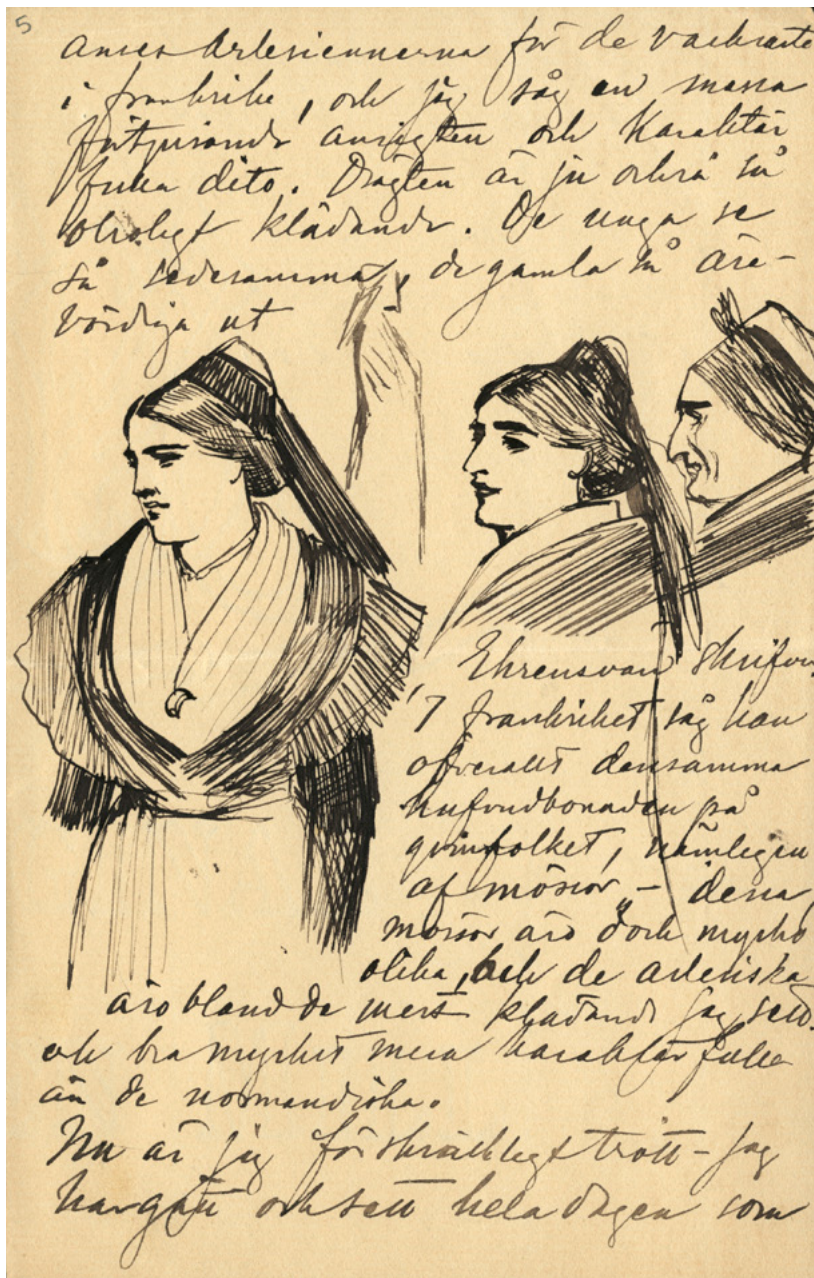 5
anses Arlesiennerna för de vackraste
i frankrike, och jag såg en massa
förtjusande ansigten och Karaktär
fulla dito. Drägten är ju också så
otroligt klädande. De unga se
så sedesamma, de gamla så äre-
vördiga ut
Ehrensvärd skrifver
"I frankriket såg han
öfverallt densamma
hufvudbonaden på
qvinfolket, nämligen
af mössor" – dessa
mössor äro dock mycket
olika, och de arlesiska
äro bland de mest klädande jag sett.
och bra mycket mera karaktärfulla
än de normandiska.
Nu är jag förskräckligt trött – jag
har gått och sett hela dagen som